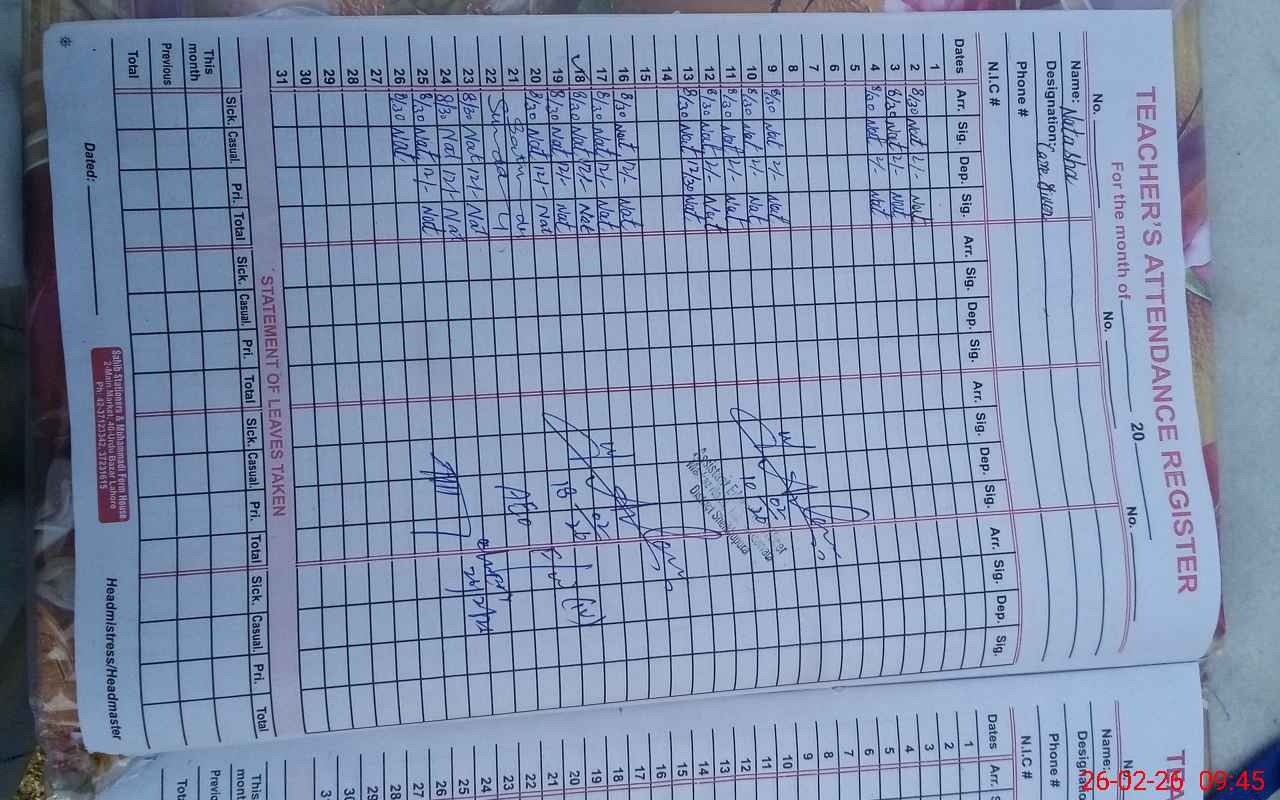 TEACHER'S ATTENDANCE REGISTER
For the month of 20
No. No. No.
Name: Natasha
Designation: Care Giver
Phone #
N.I.C #
Dates Arr. Sig. Dep. Sig. Arr. Sig. Dep. Sig. Arr. Sig. Dep. Sig. Arr. Sig. Dep. Sig.
1
2 8/30 Nat 12/- Nat
3 8/30 Nat 12/- Nat
4 8/30 Nat 12/- Nat
5
6
7
8
9 8/30 Nat 12/- Nat
10 8/30 Nat 12/- Nat
11 8/30 Nat 12/- Nat
12 8/30 Nat 12/- Nat
13 8/30 Nat 12/30 Nat
14
15
16 8/30 Nat 12/- Nat
17 8/30 Nat 12/- Nat
18 8/30 Nat 12/- Nat
19 8/30 Nat 12/- Nat
20 8/30 Nat 12/- Nat
21
22 Sunday
23 8/30 Nat 12/- Nat
24 8/30 Nat 12/- Nat
25 8/30 Nat 12/- Nat
26 8/30 Nat
27
28
29
30
31
18 02 26
AEO
STATEMENT OF LEAVES TAKEN
Sick. Casual. Pri. Total Sick. Casual. Pri. Total Sick. Casual. Pri. Total Sick. Casual. Pri. Total
This month
Previous
Total
Dated: Headmistress/Headmaster
Sahib Stationers & Mohammadi Form House
2-Main Market, 40-Urdu Bazar Lahore
Ph: 42-37123342, 37231615
Name:
Designatio
Phone #
N.I.C #
Dates Arr.
1
2
3
4
5
6
7
8
9
10
11
12
13
14
15
16
17
18
19
20
21
22
23
24
25
26
27
28
29
30
This
mon
Previous
26-02-26 09:45